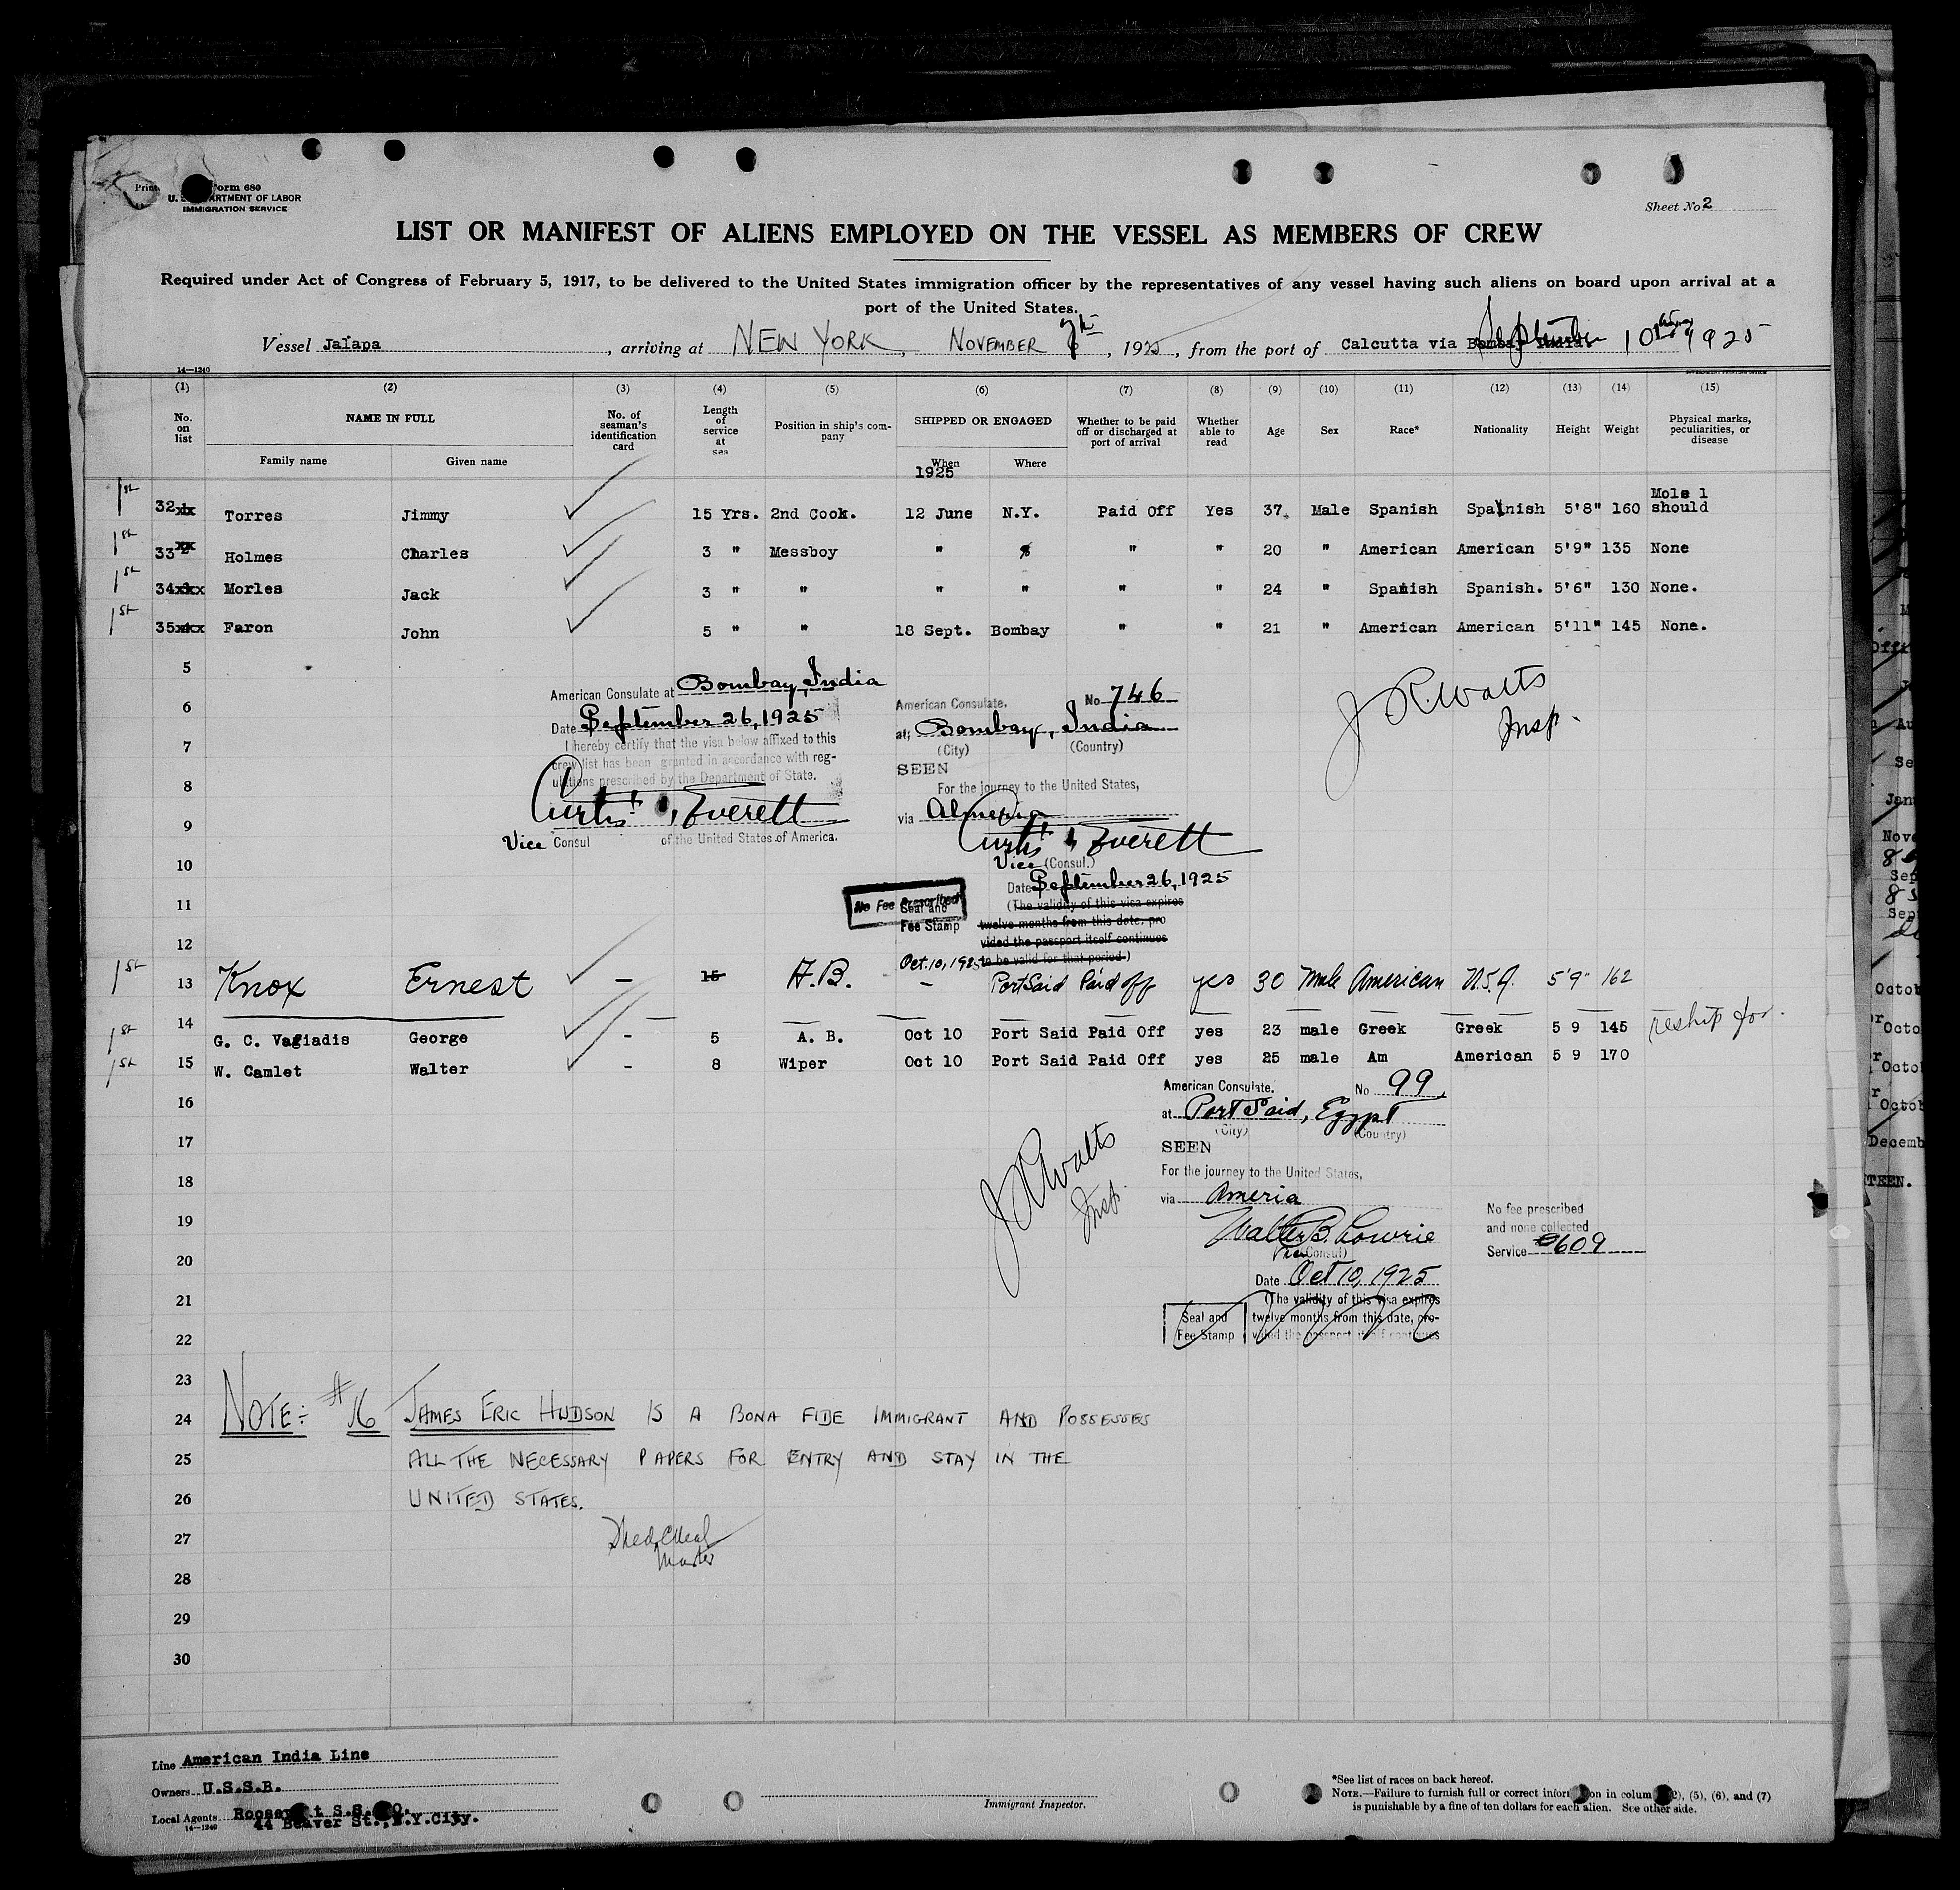 Form 680
U. S. DEPARTMENT OF LABOR
IMMIGRATION SERVICE
Sheet No. 2
LIST OR MANIFEST OF ALIENS EMPLOYED ON THE VESSEL AS MEMBERS OF CREW
Required under Act of Congress of February 5, 1917, to be delivered to the United States immigration officer by the representatives of any vessel having such aliens on board upon arrival at a
port of the United States.
Vessel Jalapa, arriving at NEW YORK, NOVEMBER 7th, 1925, from the port of Calcutta via September 10th 1925
14—1240
(1) (2) (3) (4) (5) (6) (7) (8) (9) (10) (11) (12) (13) (14) (15)
No. on list NAME IN FULL Family name Given name No. of seaman's identification card Length of service at sea Position in ship's company SHIPPED OR ENGAGED When 1925 Where Whether to be paid off or discharged at port of arrival Whether able to read Age Sex Race* Nationality Height Weight Physical marks, peculiarities, or disease
1st 32 Torres Jimmy 15 Yrs. 2nd Cook. 12 June N.Y. Paid Off Yes 37 Male Spanish Spanish 5'8" 160 Mole l should
1st 33 Holmes Charles 3 " Messboy " " " " 20 " American American 5'9" 135 None
1st 34 Morles Jack 3 " " " " " " 24 " Spanish Spanish. 5'6" 130 None.
1st 35 Faron John 5 " " 18 Sept. Bombay " " 21 " American American 5'11" 145 None.
5
6
7
8
9
10
11
12
American Consulate at Bombay, India
Date September 26, 1925
I hereby certify that the visa below affixed to this
crew list has been granted in accordance with reg-
ulations prescribed by the Department of State.
Curtis T. Everett
Vice Consul of the United States of America.
American Consulate. No 746
at Bombay, India
(City) (Country)
SEEN
For the journey to the United States,
via Almeria
Curtis T. Everett
Vice (Consul.)
Date September 26, 1925
(The validity of this visa expires
twelve months from this date, pro
vided the passport itself continues
to be valid for that period.)
No Fee Prescribed
Seal and
Fee Stamp
J R. Watts
Insp.
Oct. 10, 1925
1st 13 Knox Ernest – 15 A.B. – Port Said Paid off yes 30 Male American U.S.A. 5'9" 162
1st 14 G. C. Vagiadis George - 5 A. B. Oct 10 Port Said Paid Off yes 23 male Greek Greek 5 9 145 reship for.
1st 15 W. Camlet Walter - 8 Wiper Oct 10 Port Said Paid Off yes 25 male Am American 5 9 170
16
17
18
19
20
21
22
American Consulate. No 99
at Port Said, Egypt
(City) (Country)
SEEN
For the journey to the United States,
via Ameria
Walter B. Lowrie
Vice (Consul)
Date Oct 10, 1925
(The validity of this visa expires
twelve months from this date, pro-
vided the passport itself continues
Seal and
Fee Stamp
No fee prescribed
and none collected
Service 609
J R Watts
Insp.
23
24 NOTE:- #16 JAMES ERIC HUDSON IS A BONA FIDE IMMIGRANT AND POSSESSES
25 ALL THE NECESSARY PAPERS FOR ENTRY AND STAY IN THE
26 UNITED STATES.
27
Master
28
29
30
Line American India Line
Owners U.S.S.B.
Local Agents Roosevelt S.S. CO.
44 Beaver St., N.Y.City.
14—1240
Immigrant Inspector.
*See list of races on back hereof.
NOTE.—Failure to furnish full or correct information in columns (2), (5), (6), and (7)
is punishable by a fine of ten dollars for each alien. See other side.